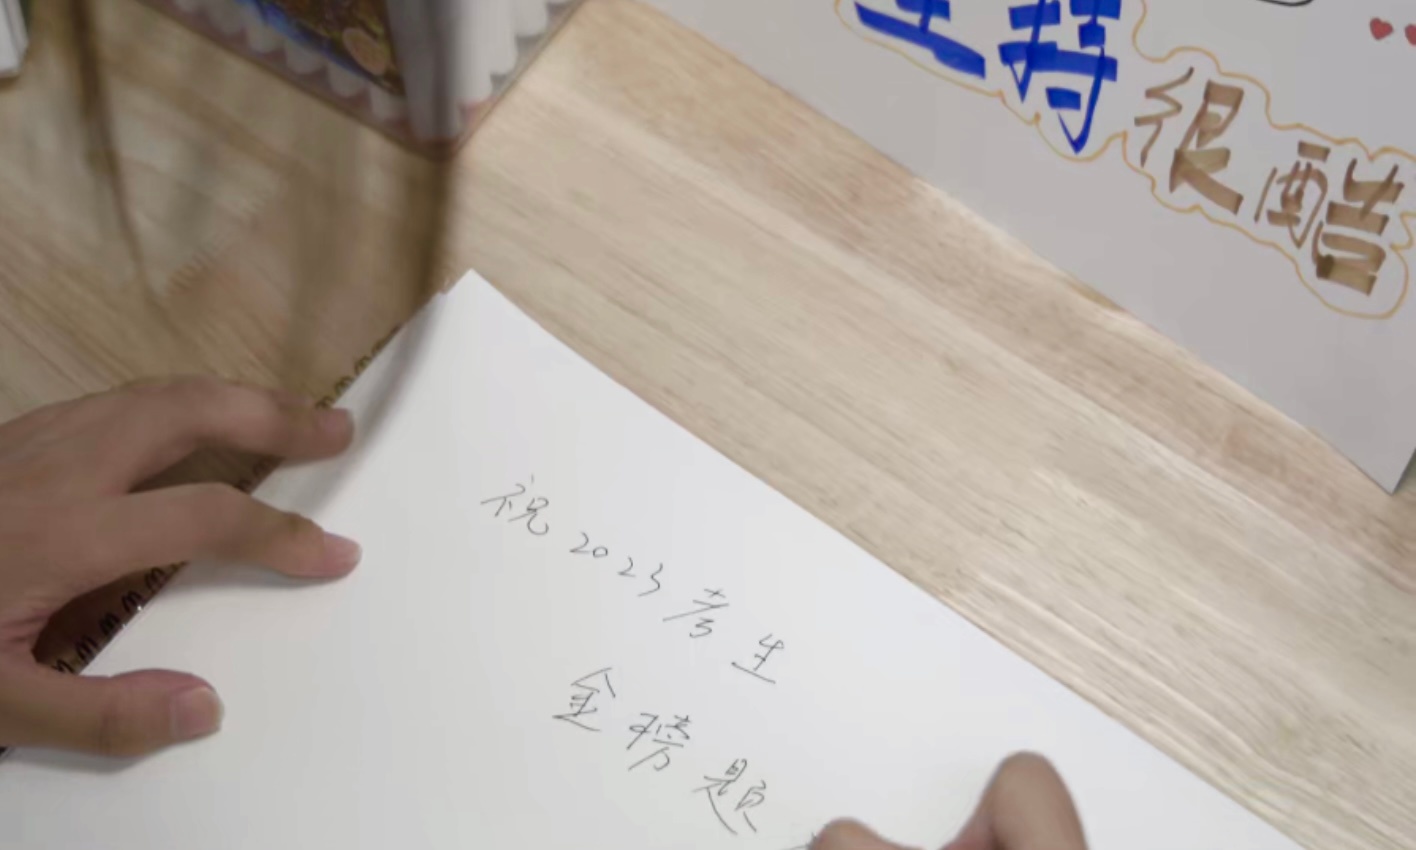 坚持很酷
祝2023考生
金榜题